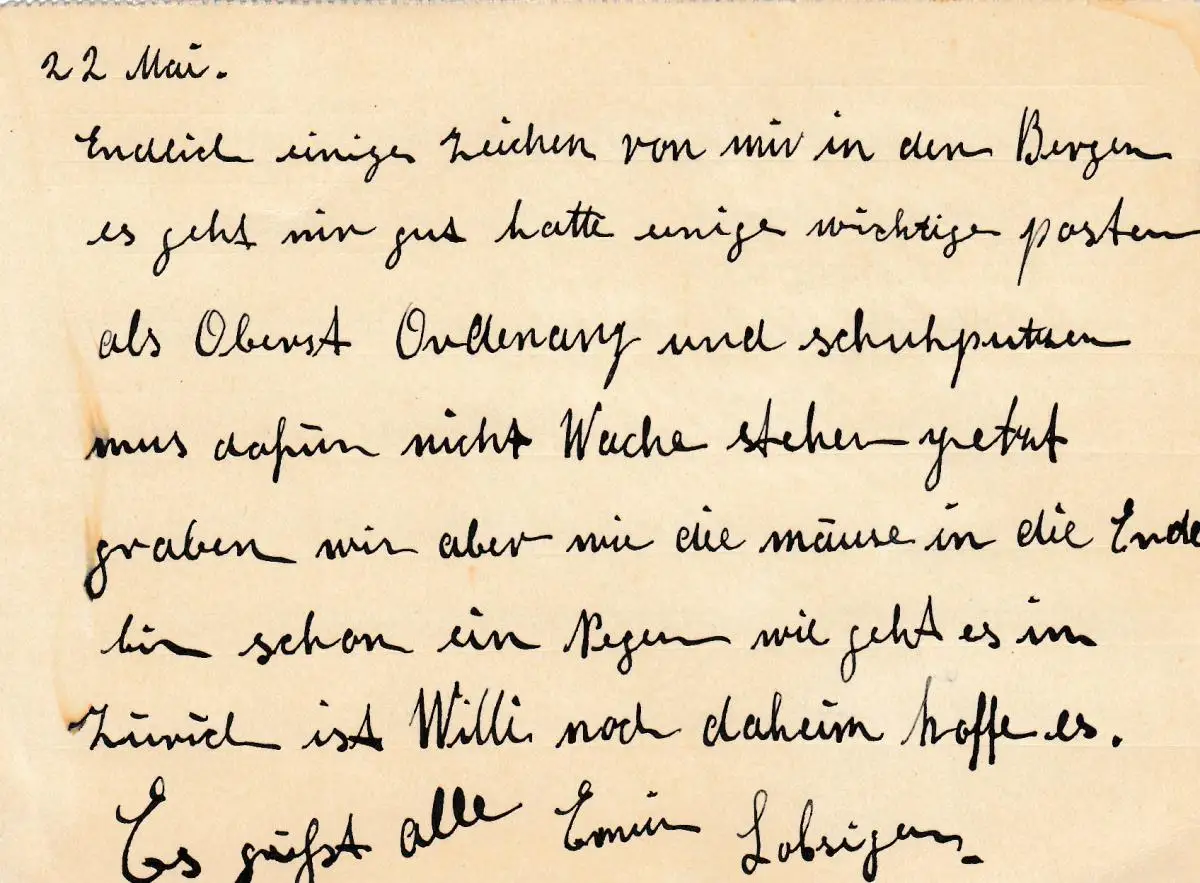 22 Mai.
Endlich einige Zeichen von mir in den Bergen
es geht mir gut hatte einige wichtige posten
als Oberst Ordenanz und schuhputzen
mus dafür nicht Wache stehen yetzt
graben wir aber wie die mäuse in die Erde
bin schon ein Neger wie geht es im
Zürich ist Willi noch daheim hoffe es.
Es grüsst alle Erwin Lobsiger